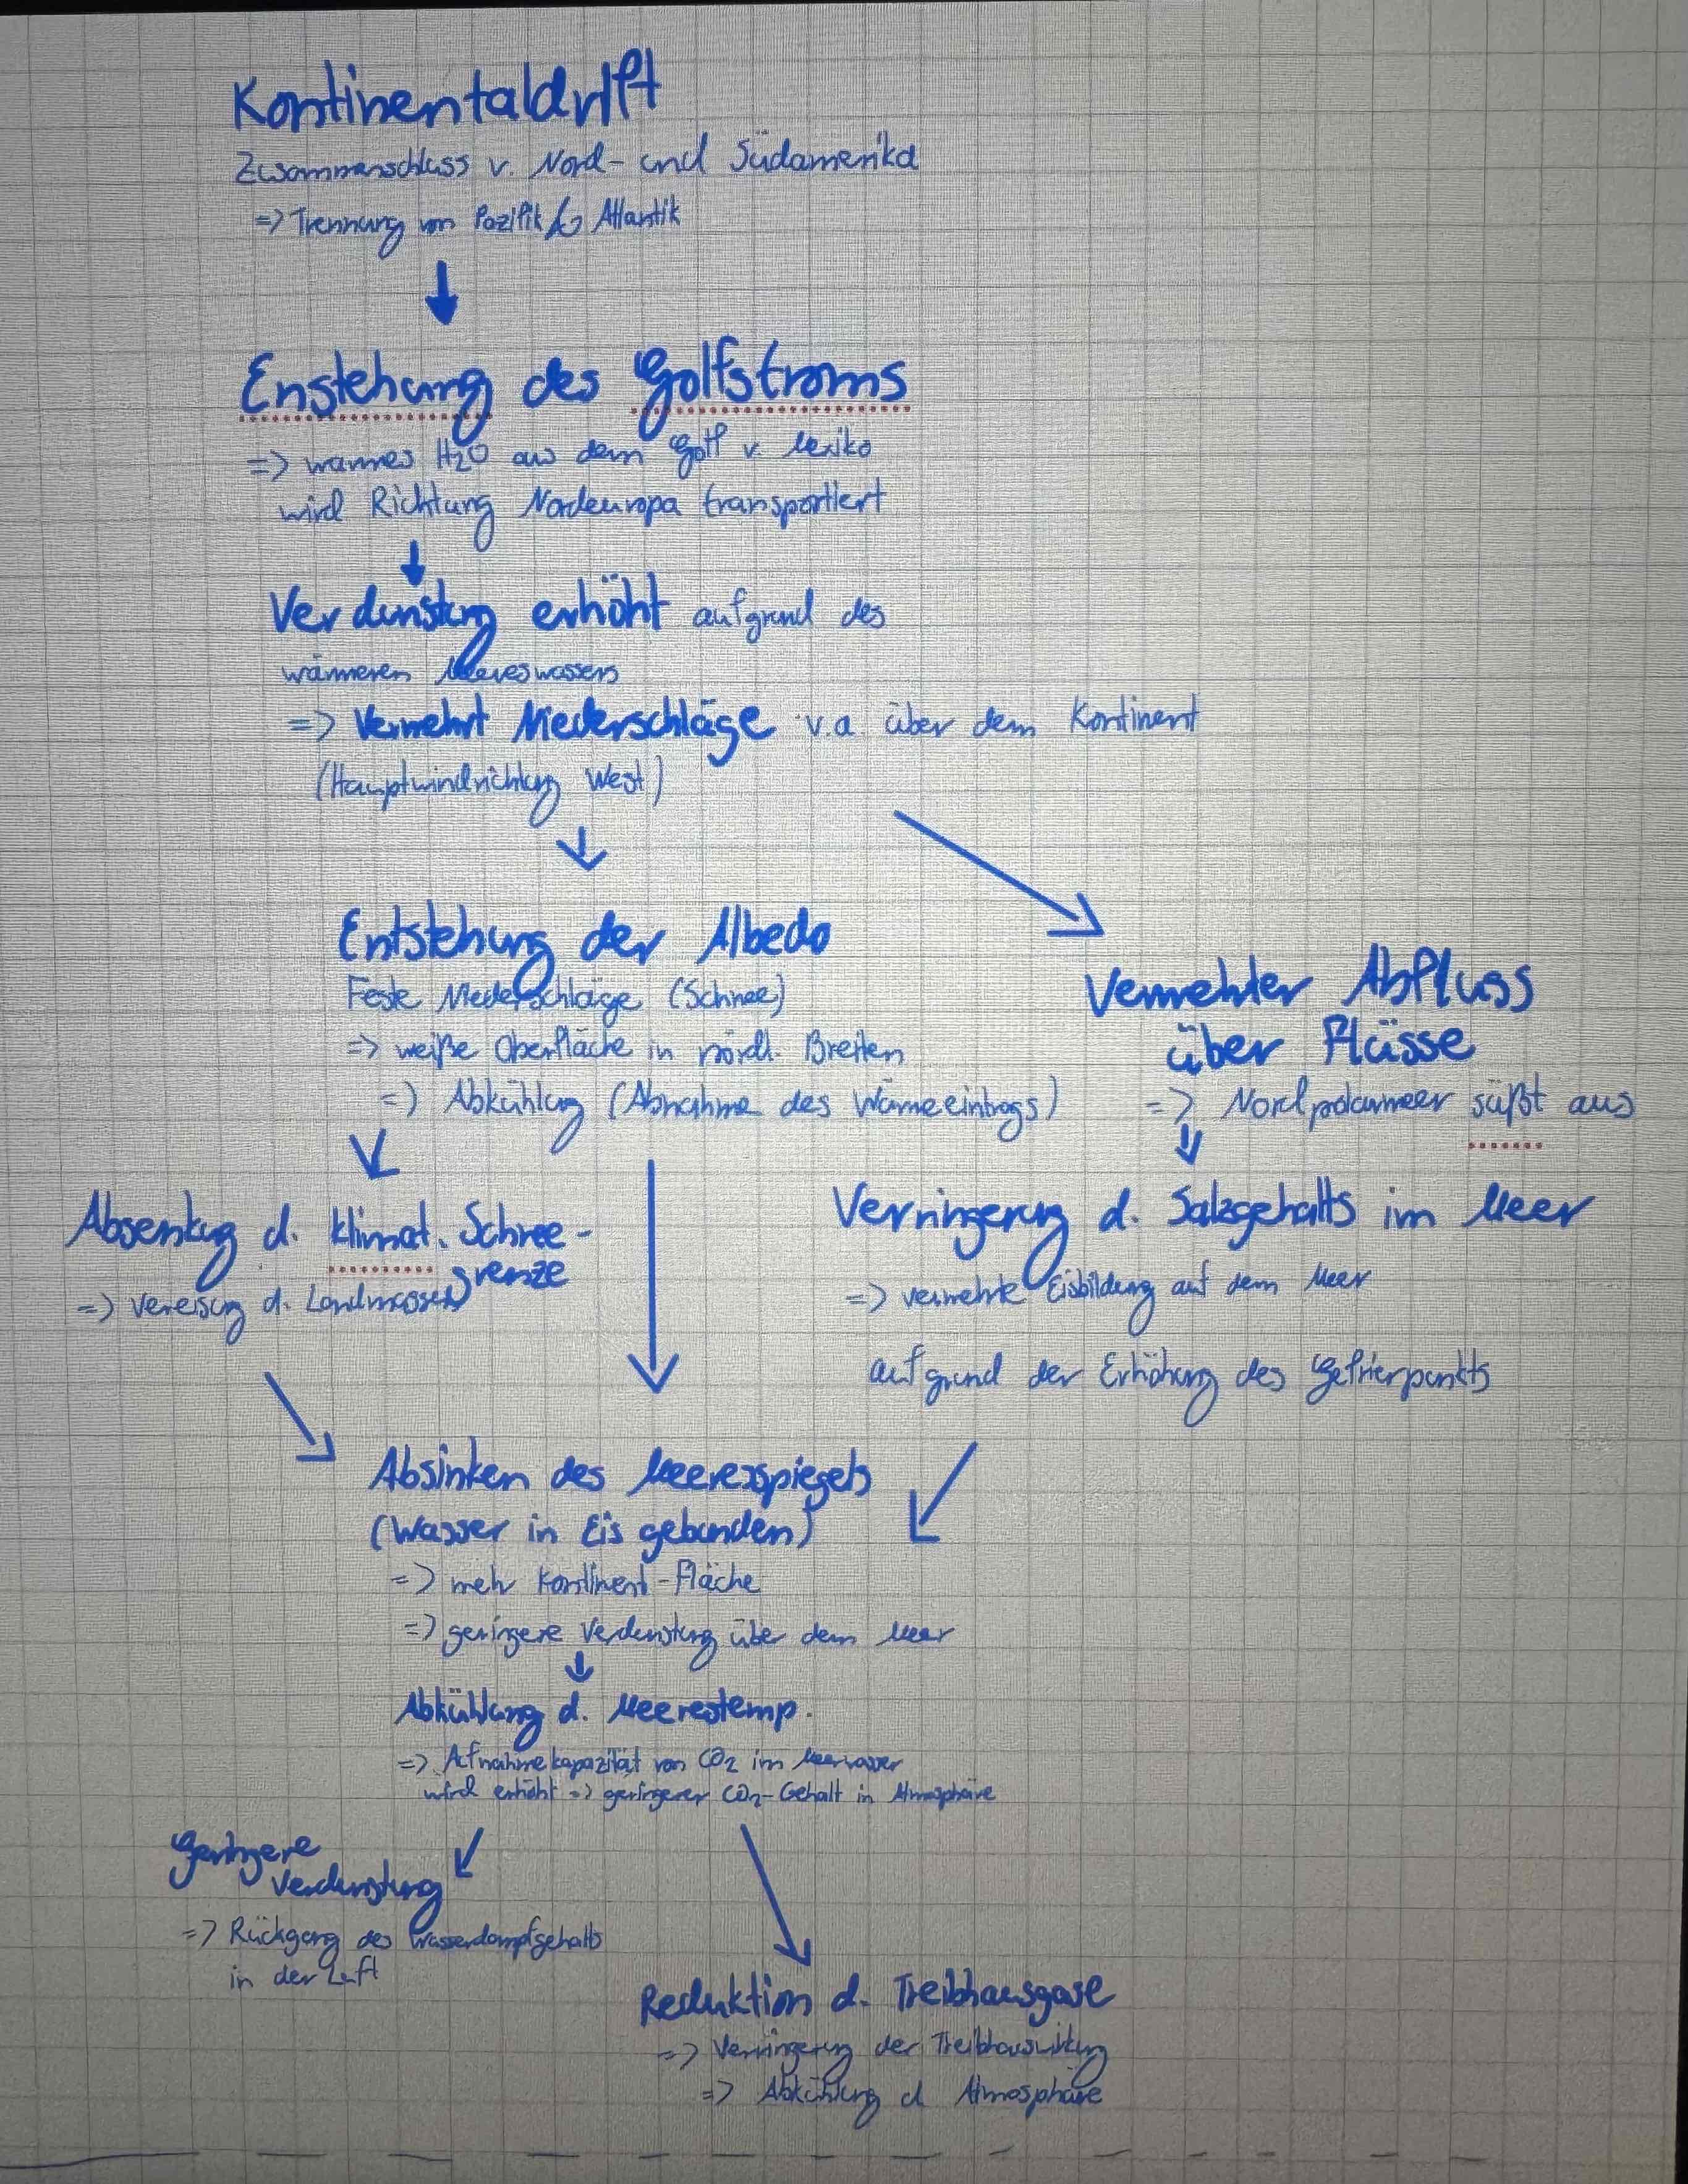 Kontinentaldrift
Zusammenschluss v. Nord- und Südamerika
=> Trennung von Pazifik & Atlantik
Enstehung des Golfstroms
=> warmes H2O aus dem Golf v. Mexiko
wird Richtung Nordeuropa transportiert
Verdunstung erhöht aufgrund des
wärmeren Meereswassers
=> Vermehrt Niederschläge v.a. über dem Kontinent
(Hauptwindrichtung West)
Entstehung der Albedo
Feste Niederschläge (Schnee)
=> weiße Oberfläche in nördl. Breiten
=> Abkühlung (Abnahme des Wärmeeintrags)
Vermehrter Abfluss
über Flüsse
=> Nordpolarmeer süßt aus
Absenkung d. klimat. Schnee-
grenze
=> Vereisung d. Landmassen
Verringerung d. Salzgehalts im Meer
=> vermehrte Eisbildung auf dem Meer
aufgrund der Erhöhung des Gefrierpunkts
Absinken des Meeresspiegels
(Wasser in Eis gebunden)
=> mehr Kontinent-Fläche
=> geringere Verdunstung über dem Meer
Abkühlung d. Meerestemp.
=> Aufnahmekapazität von CO2 im Meerwasser
wird erhöht => geringerer CO2-Gehalt in Atmosphäre
Geringere
Verdunstung
=> Rückgang des Wasserdampfgehalts
in der Luft
Reduktion d. Treibhausgase
=> Verringerung der Treibhauswirkung
=> Abkühlung d Atmosphäre